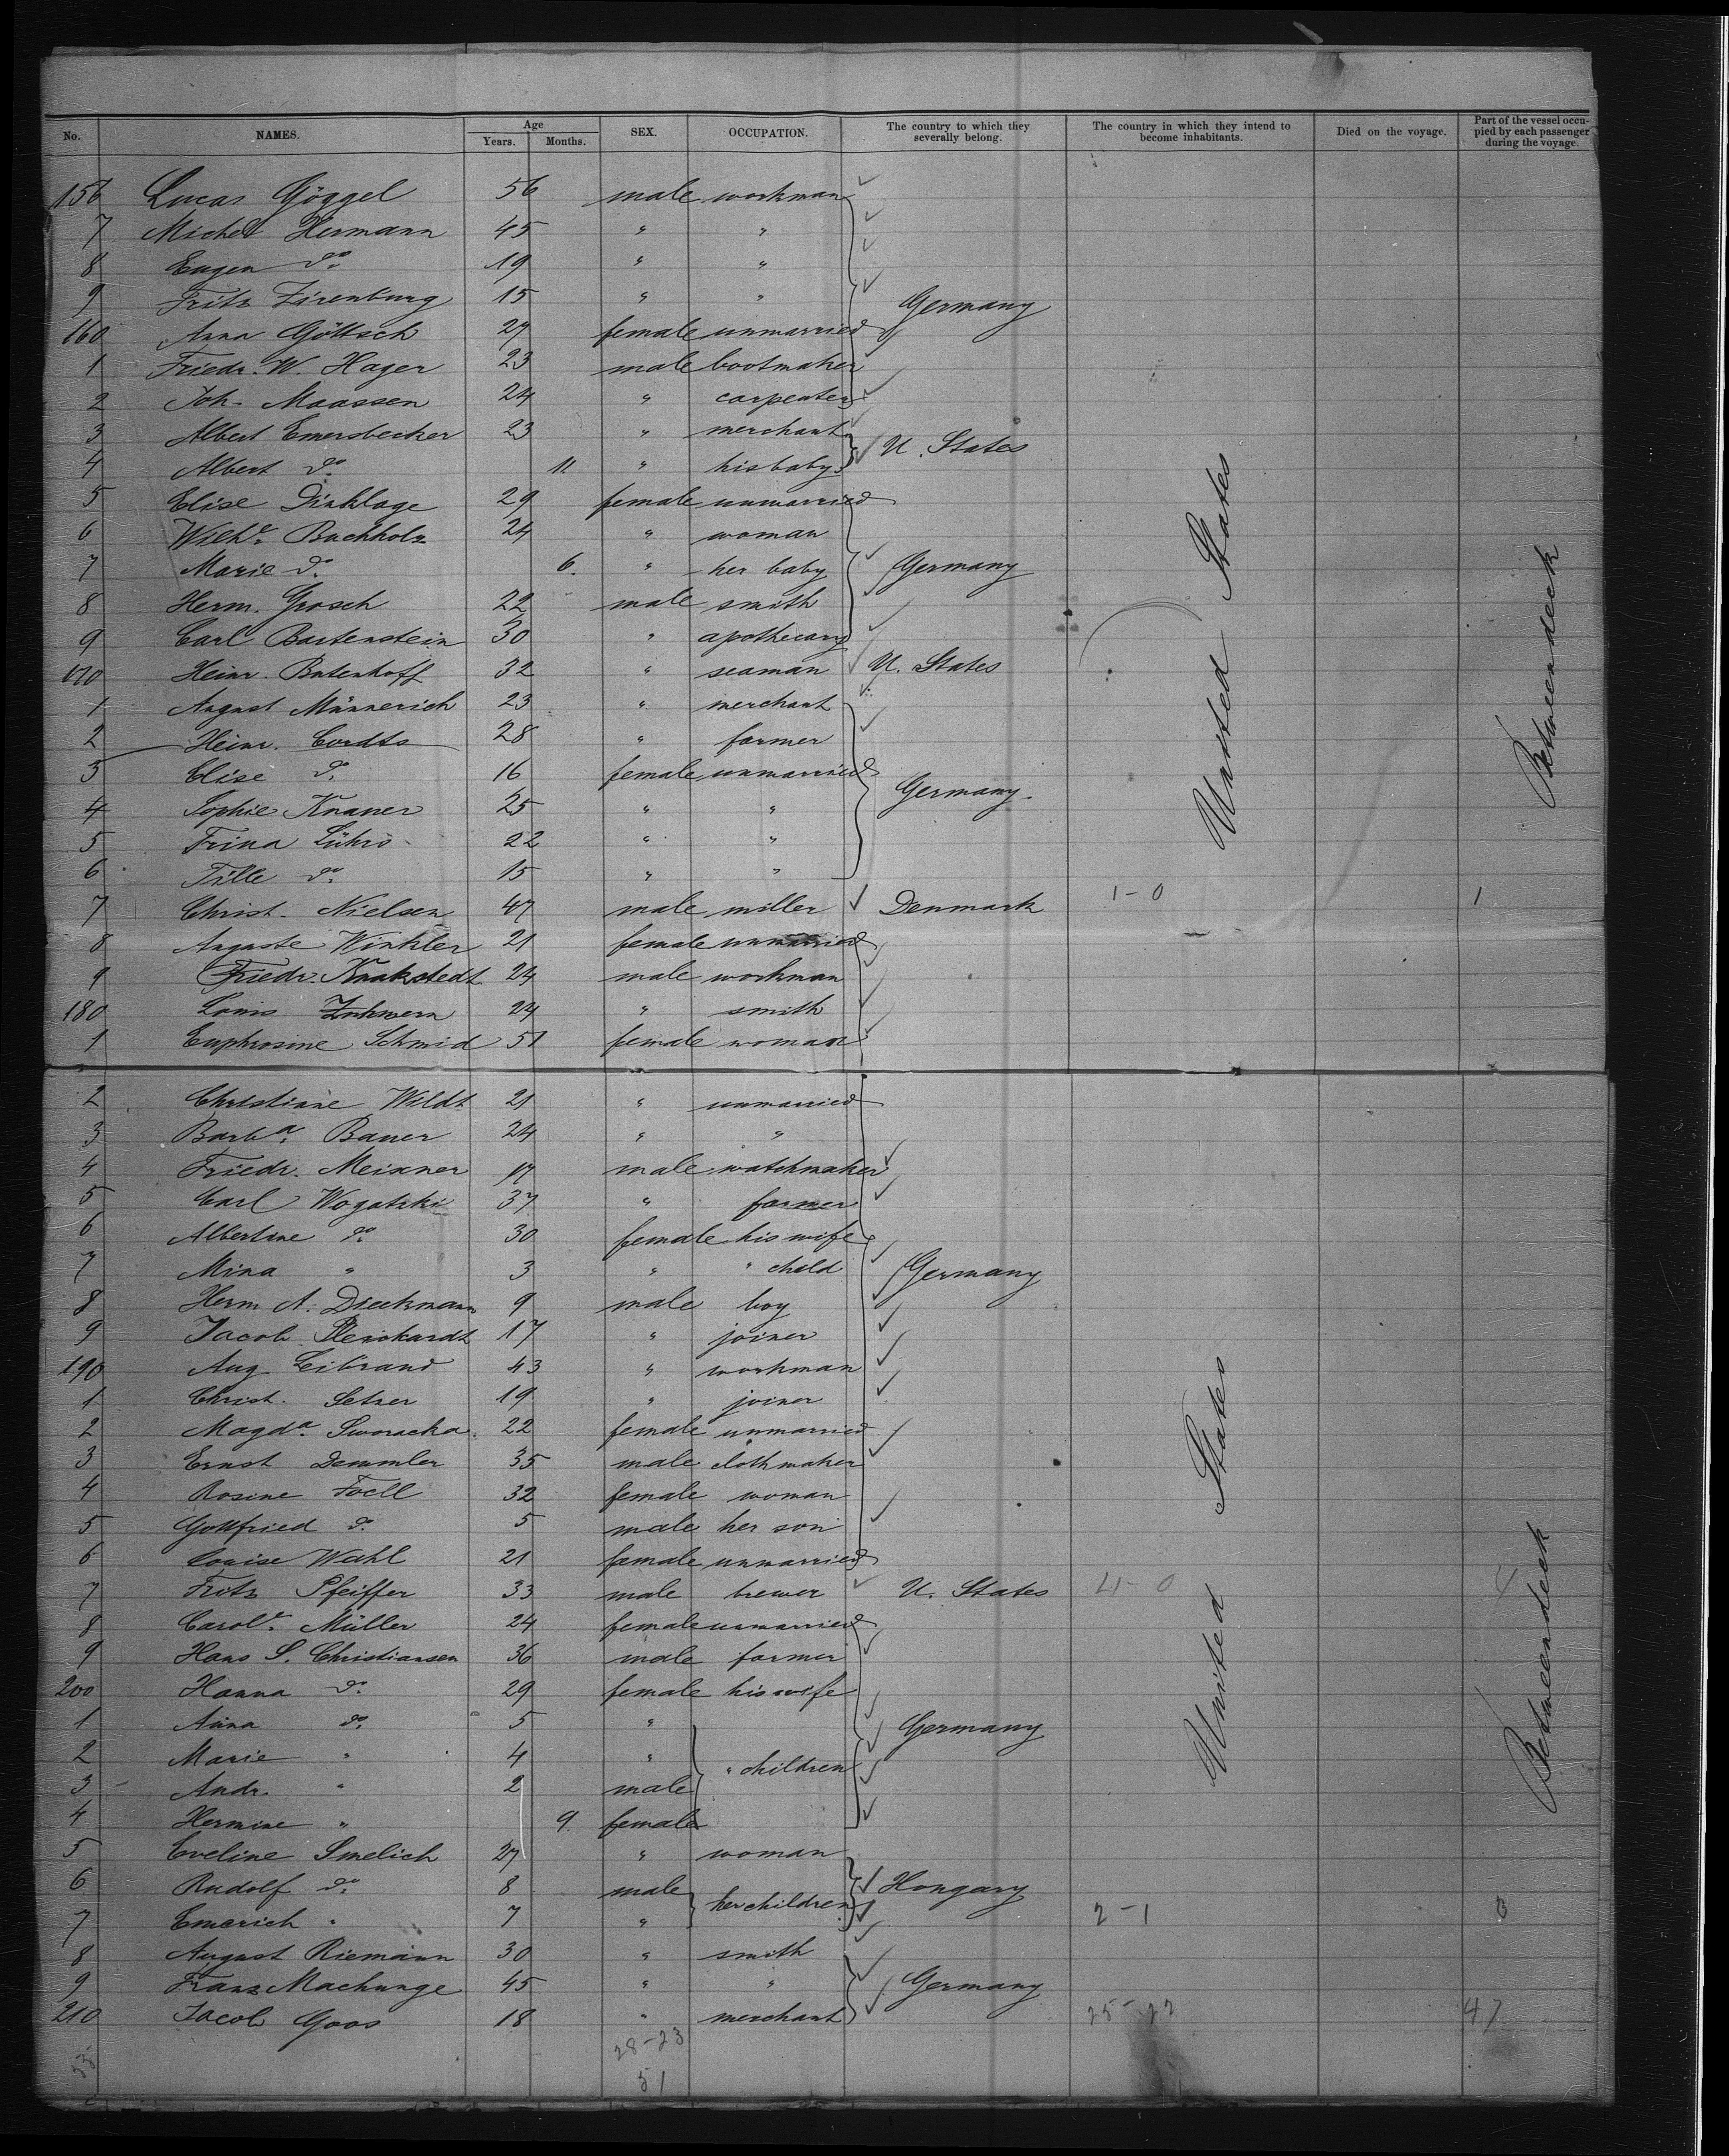 No. NAMES. Age Years. Months. SEX. OCCUPATION. The country to which they severally belong. The country in which they intend to become inhabitants. Died on the voyage. Part of the vessel occupied by each passenger during the voyage.
156 Lucas Göggel 56 male workman
7 Michel Hermann 45 " "
8 Eugen do. 19 " "
9 Fritz Zirenburg 15 " " Germany
160 Anna Göttsch 27 female unmarried
1 Friedr. W. Hager 23 male bootmaker
2 Joh. Maassen 24 " carpenter
3 Albert Emersbecker 23 " merchant U. States
4 Albert do. 11 " his baby
5 Elise Dinklage 29 female unmarried
6 Wilhe. Buchholz 24 " woman
7 Marie do. 6. " her baby Germany
8 Herm. Grosch 22 male smith
9 Carl Bartenstein 30 " apothecary
170 Heinr. Batenhoff 32 " seaman U. States
1 August Männerich 23 " merchant
2 Heinr. Cordts 28 " farmer
3 Elise do. 16 female unmarried Germany.
4 Sophie Knauer 25 " "
5 Trina Lührs 22 " "
6 Tille do. 15 " "
7 Christ. Nielsen 47 male miller Denmark 1-0 1
8 Auguste Winkler 21 female unmarried
9 Friedr. 24 male workman
180 Louis 24 " smith
1 Euphrosine Schmid 51 female woman
United States
Betweendeck
2 Christiane Wildt 21 " unmarried
3 Barba. Bauer 24 " "
4 Friedr. Meixner 17 male watchmaker
5 Carl Wogatzki 37 " farmer
6 Albertine do. 30 female his wife
7 Mina " 3 " " child Germany
8 Herm. A. Dieckmann 9 male boy
9 Jacob Reichardt 17 " joiner
190 Aug. Leibrand 43 " workman
1 Christ. Setzer 19 " joiner
2 Magda. Sworacka 22 female unmarried
3 Ernst Demmler 35 male clothmaker
4 Rosine Foell 32 female woman
5 Gottfried do. 5 male her son
6 Louise Wahl 21 female unmarried
7 Fritz Pfeiffer 33 male brewer U. States 4-0 4
8 Carole. Müller 24 female unmarried
9 Hans S. Christiansen 36 male farmer
200 Hanna do. 29 female his wife
1 Anna do. 5 " Germany
2 Marie " 4 " " children
3 Andr. " 2 male
4 Hermine " 9 female
5 Eveline Smelich 27 " woman
6 Rudolf do. 8 male her children Hongary
7 Emerich " 7 " 2-1 3
8 August Riemann 30 " smith
9 Franz Machunge 45 " " Germany
210 Jacob Goos 18 " merchant 25-22 47
28-23
51
United States
Betweendeck